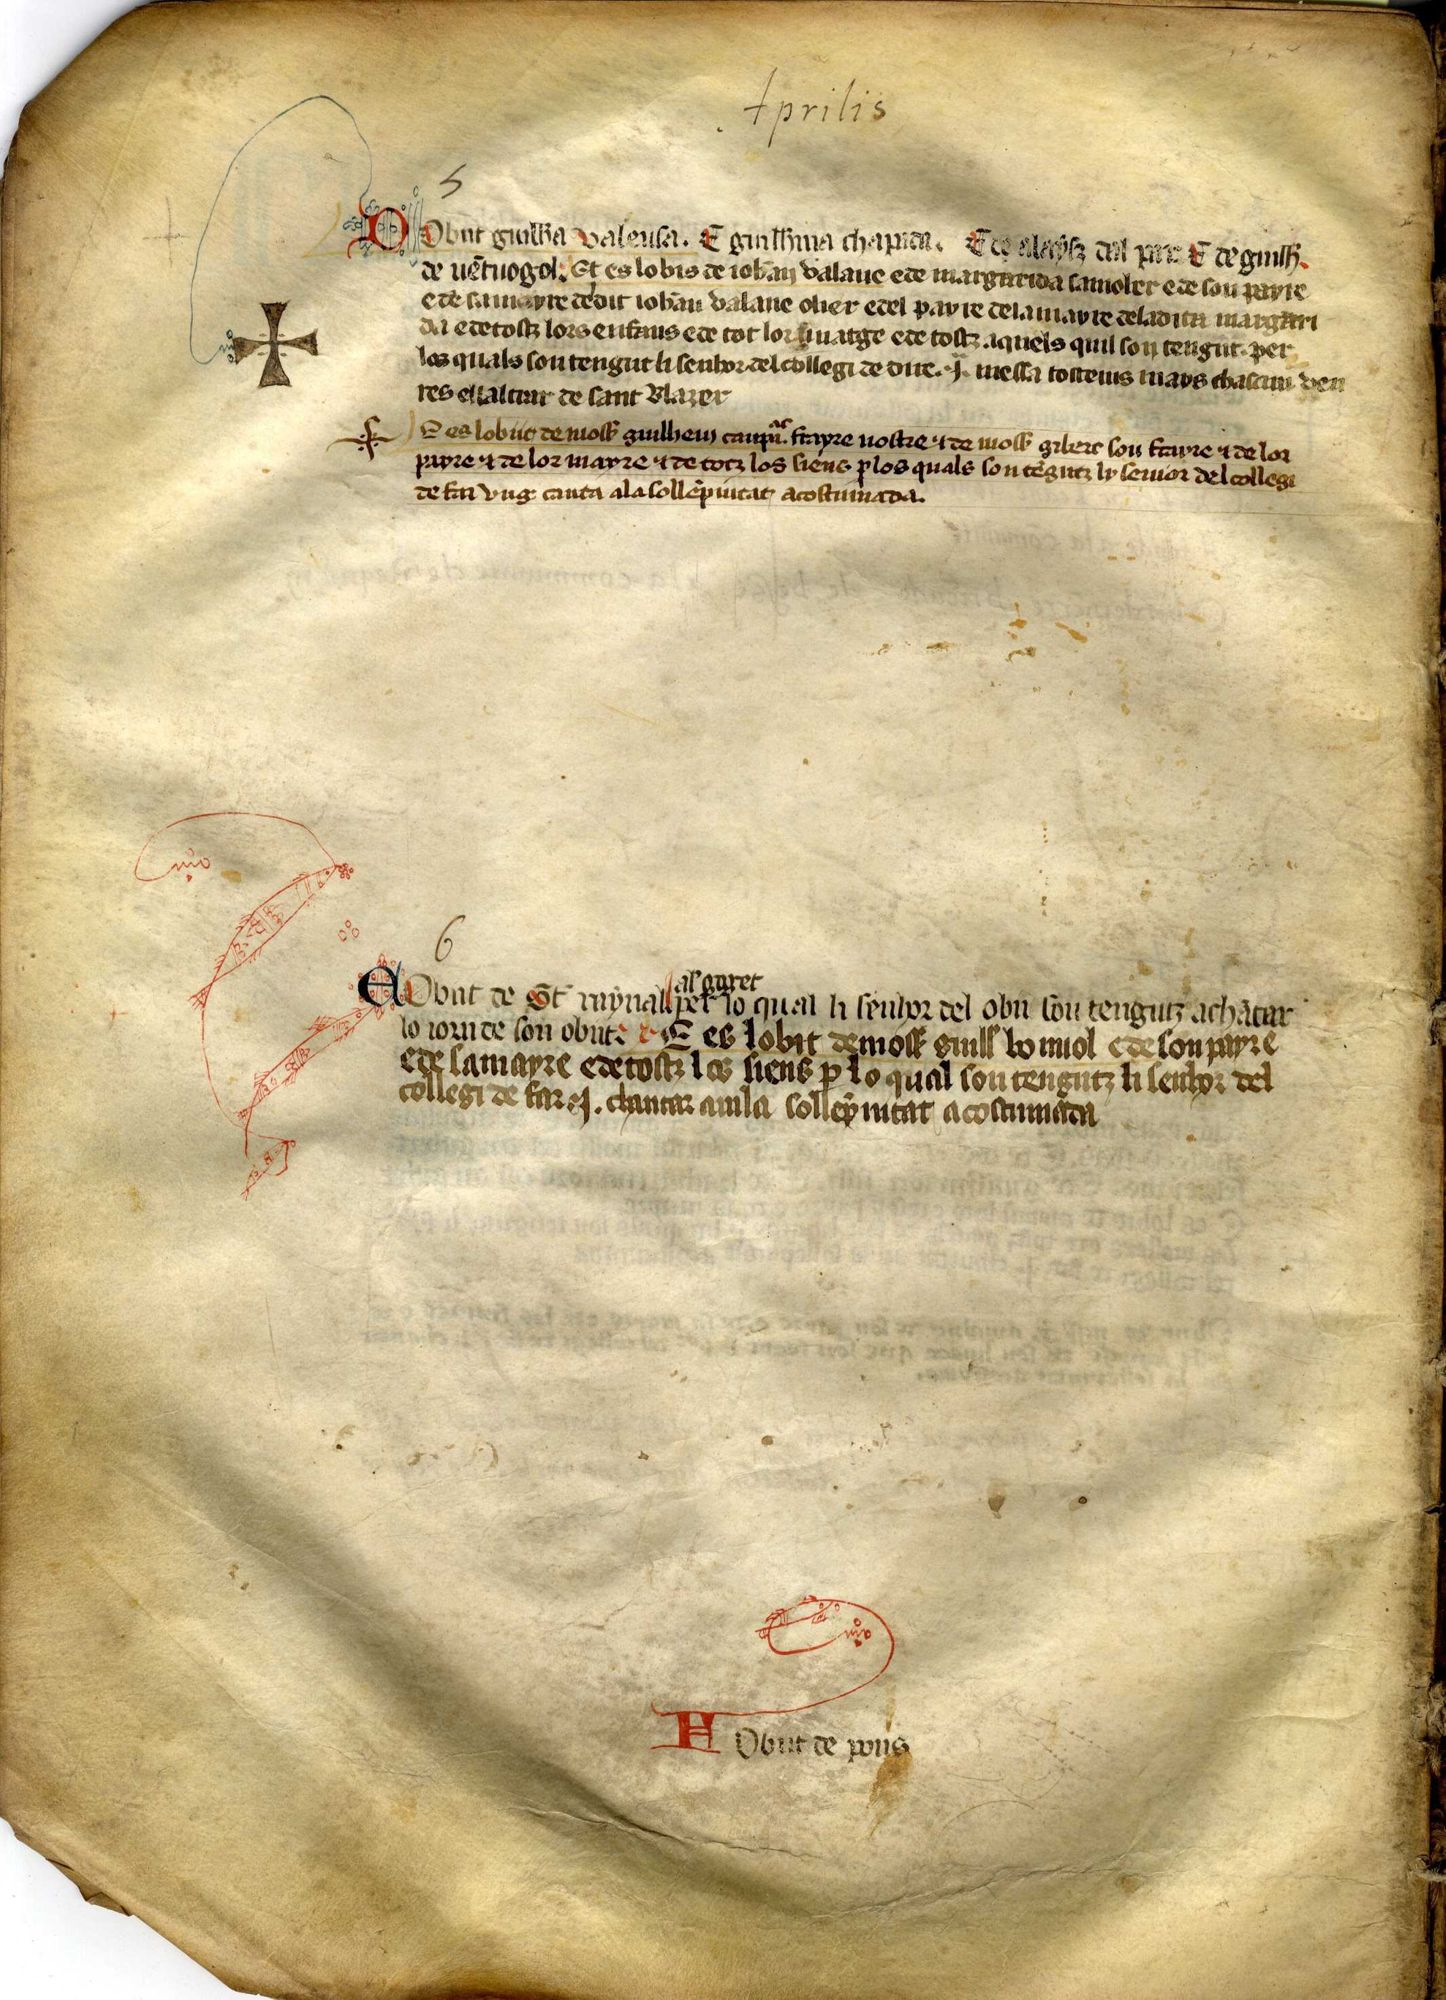 Aprilis
5
D Obiit guillma valensa. E guillmna chapata. E de alaysz dal prat E de guillz.
de ventuogol. Et es lobis de iohan valane e de margarida samoler e de son payre
e de samayre de dit iohan valane olier e del payre de la mayre de ladita margari
da e de tostz lors enfans e de tot lor linatge e de tostz aquels quil son tengut. per
los quals son tengut li senhor del collegi de dire .I. messa tostems mays chascun ven
res el laltar de sant Blazer
E es lobiit de moss guilhem fraire nostre & de moss gibert son frayre & de lor
payre & de lor mayre & de totz los siens p los quals son tegutz ly senior del collegi
de far vng canta a la sollepnitat acostumada.
6
A Obiit de St raynal per lo qual li senhor del obit son tengutz achatar
al garet
lo iorn de son obiit. E es lobit de moss guill bo miol e de son payre
e de samayre e de tostz los siens p lo qual son tengutz li senhor del
collegi de far .I. chantar am la solleynitat acostumada
A Obiit de pons